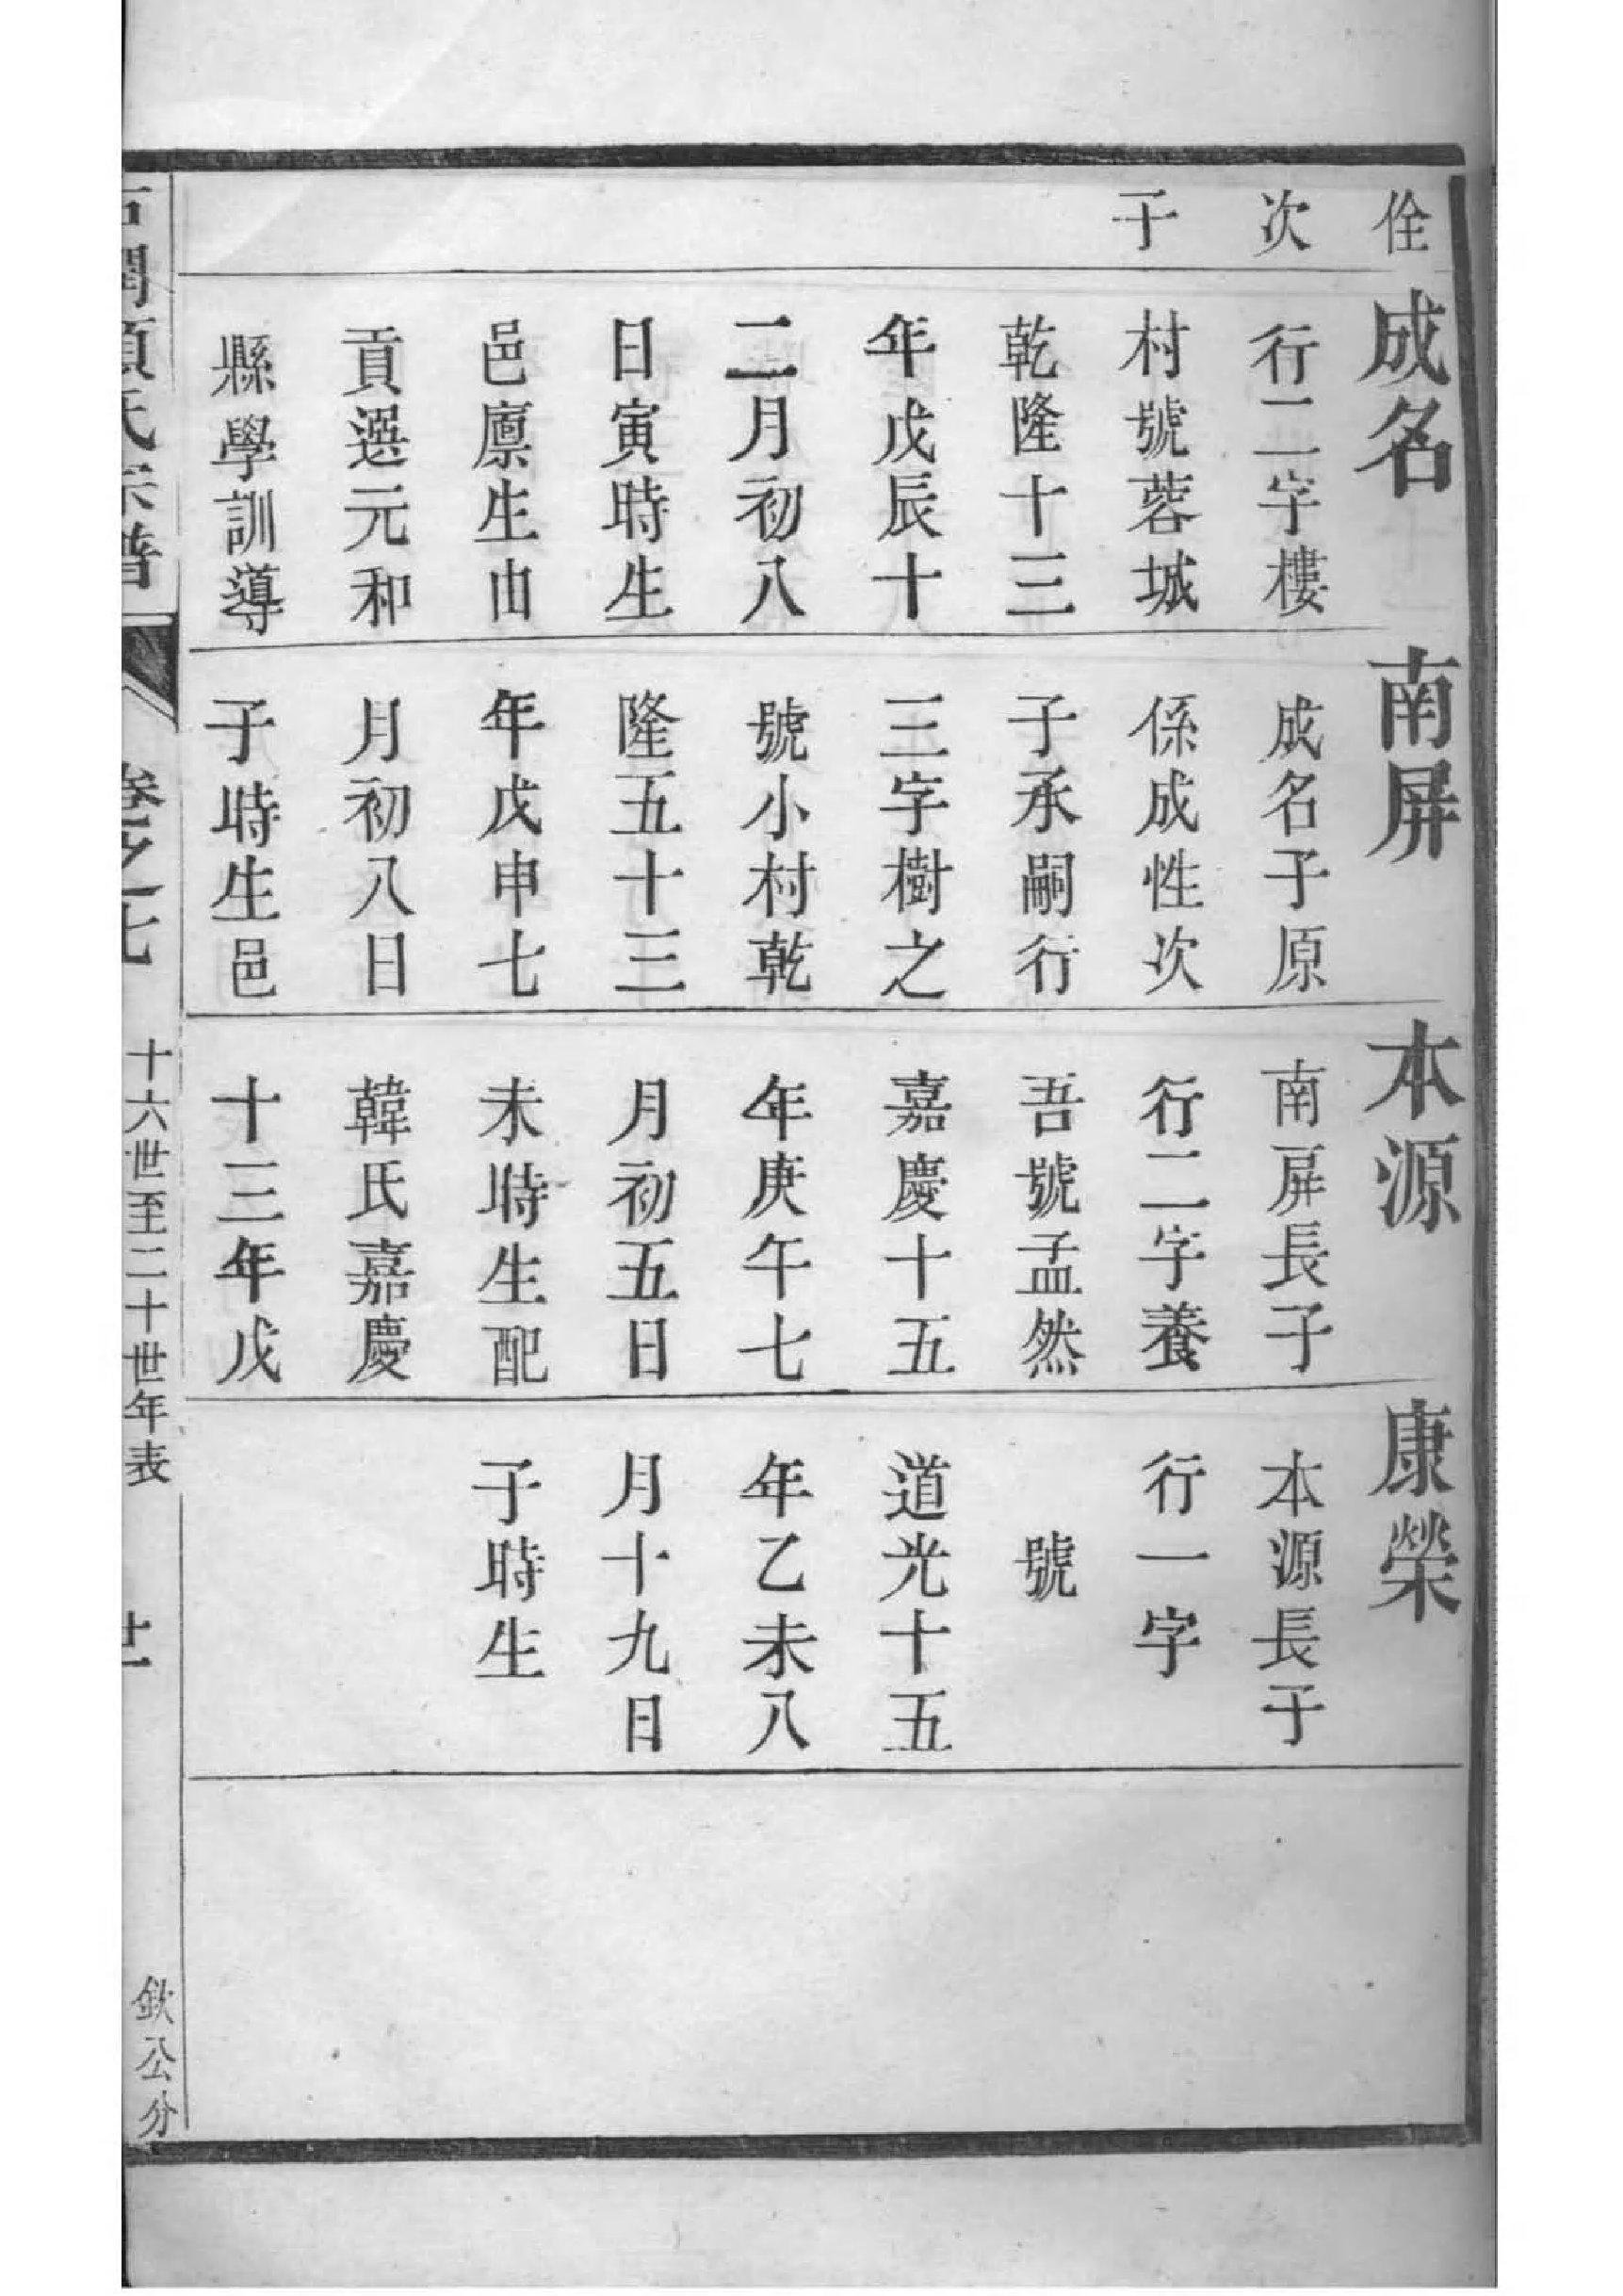 佺
次
子
成名
行二字樓
村號蓉城
乾隆十三
年戊辰十
二月初八
日寅時生
邑廪生由
貢選元和
縣學訓導
南屏
成名子原
係成性次
子承嗣行
三字樹之
號小村乾
隆五十三
年戊申七
月初八日
子時生邑
本源
南屏長子
行二字養
吾號孟然
嘉慶十五
年庚午七
月初五日
未時生配
韓氏嘉慶
十三年戊
康榮
本源長子
行一字
號
道光十五
年乙未八
月十九日
子時生
氏宗譜
卷之七
十六世至二十世年表
廿一
欽公分